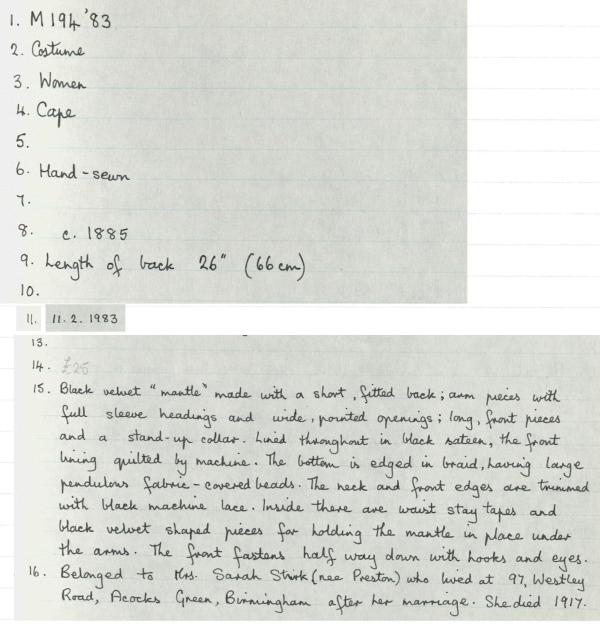 1. M194 '83
2. Costume
3. Women
4. Cape
5.
6. Hand-sewn
7.
8. c. 1885
9. Length of back 26" (66cm)
10.
11. 11. 2. 1983
13.
14. £25
15. Black velvet "mantle" made with a short, fitted back; arm pieces with
full sleeve headings and wide, pointed openings; long, front pieces
and a stand-up collar. Lined throughout in black sateen, the front
lining quilted by machine. The bottom is edged in braid, having large
pendulous fabric-covered beads. The neck and front edges are trimmed
with black machine lace. Inside there are waist stay tapes and
black velvet shaped pieces for holding the mantle in place under
the arms. The front fastens half way down with hooks and eyes.
16. Belonged to Mrs. Sarah Stirk (nee Preston) who lived at 97, Westley
Road, Acocks Green, Birmingham after her marriage. She died 1917.